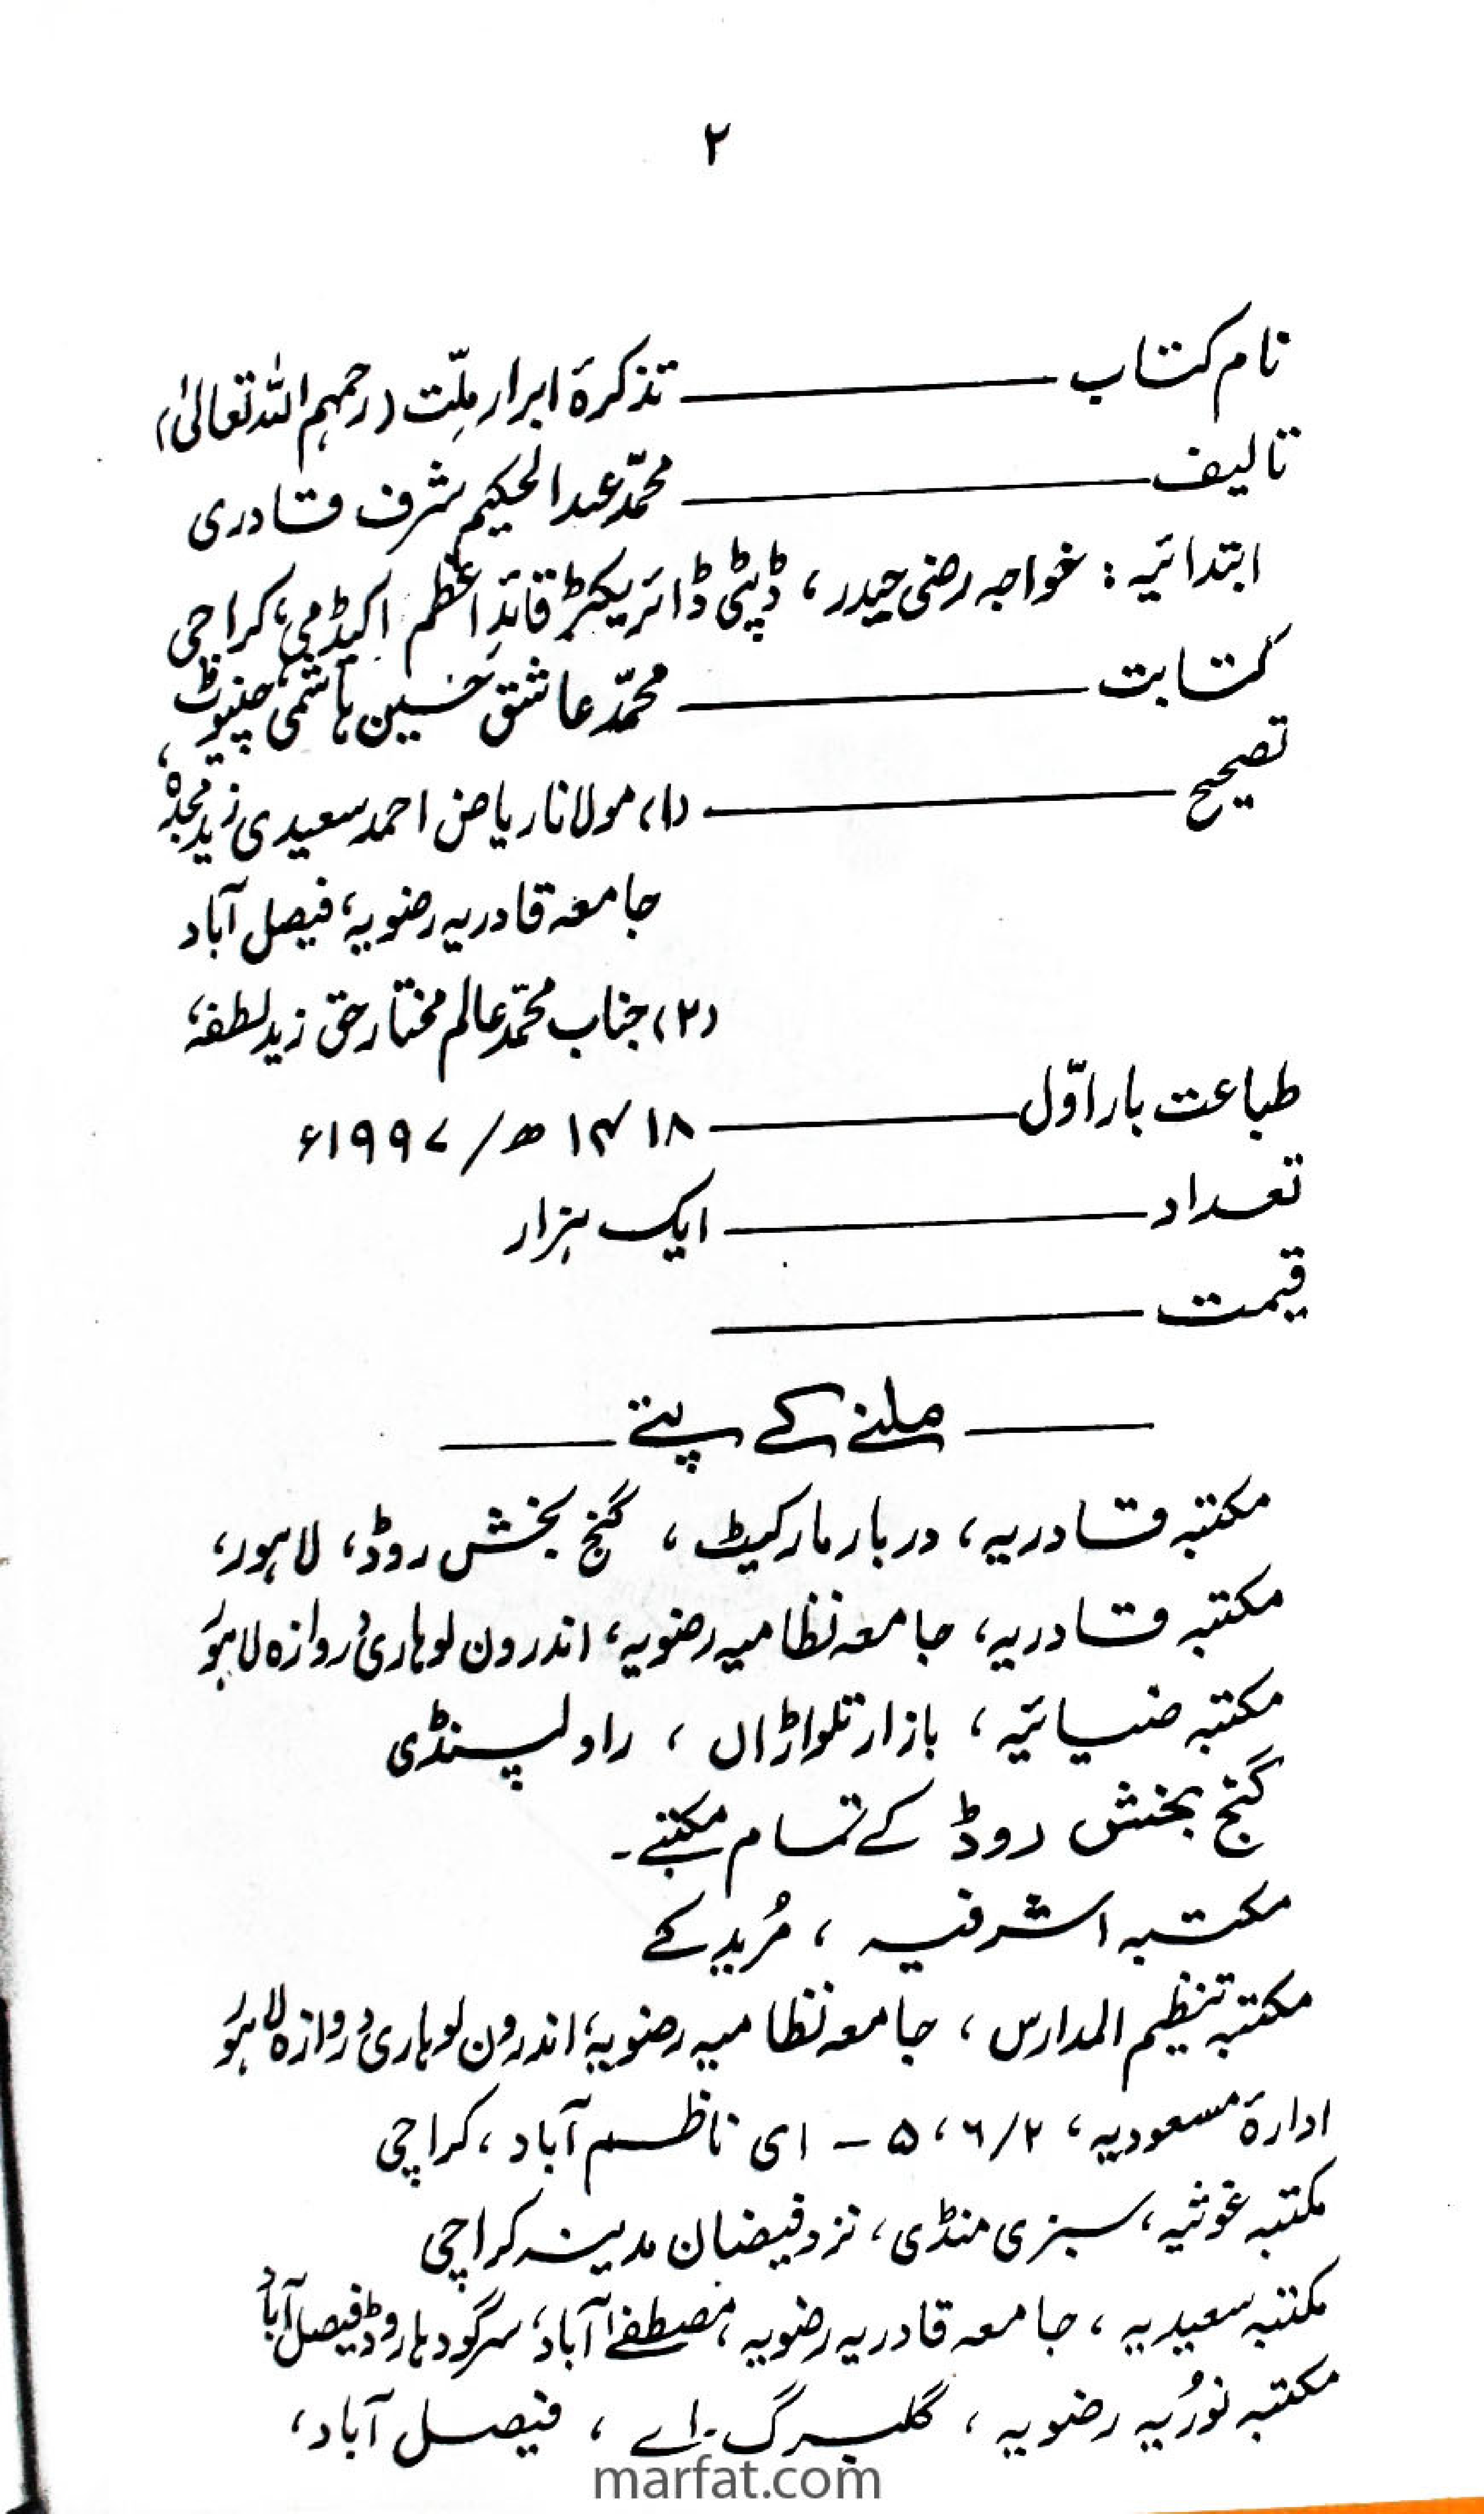 ۲
نام کتاب ——— تذکرۂ ابرار ملّت (رحمہم اللہ تعالیٰ)
تالیف ——— محمّد عبدالحکیم شرف قادری
ابتدائیہ : خواجہ رضی حیدر، ڈپٹی ڈائریکٹر قائدِ اعظم اکیڈمی، کراچی
کتابت ——— محمّد عاشق حسین ہاشمی، چنیوٹ
تصحیح ——— (۱) مولانا ریاض احمد سعیدی زید مجدہٗ،
جامعہ قادریہ رضویہ، فیصل آباد
(۲) جناب محمّد عالم مختار حق زید لطفہٗ
طباعت بار اوّل ——— ۱۴۱۸ھ / ۱۹۹۷ء
تعداد ——— ایک ہزار
قیمت ———
——— ملنے کے پتے ———
مکتبہ قادریہ، دربار مارکیٹ، گنج بخش روڈ، لاہور،
مکتبہ قادریہ، جامعہ نظامیہ رضویہ، اندرون لوہاری دروازہ لاہور
مکتبہ ضیائیہ، بازار تلواڑاں، راولپنڈی
گنج بخش روڈ کے تمام مکتبے۔
مکتبہ اشرفیہ، مُریدکے
مکتبہ تنظیم المدارس، جامعہ نظامیہ رضویہ، اندرون لوہاری دروازہ لاہور
ادارۂ مسعودیہ، ۶/۲، ۵ - ای ناظم آباد، کراچی
مکتبہ غوثیہ، سبزی منڈی، نزد فیضان مدینہ کراچی
مکتبہ سعیدیہ، جامعہ قادریہ رضویہ، مصطفےٰ آباد، سرگودہا روڈ فیصل آباد
مکتبہ نوُریہ رضویہ، گلبرگ۔اے، فیصل آباد،
marfat.com